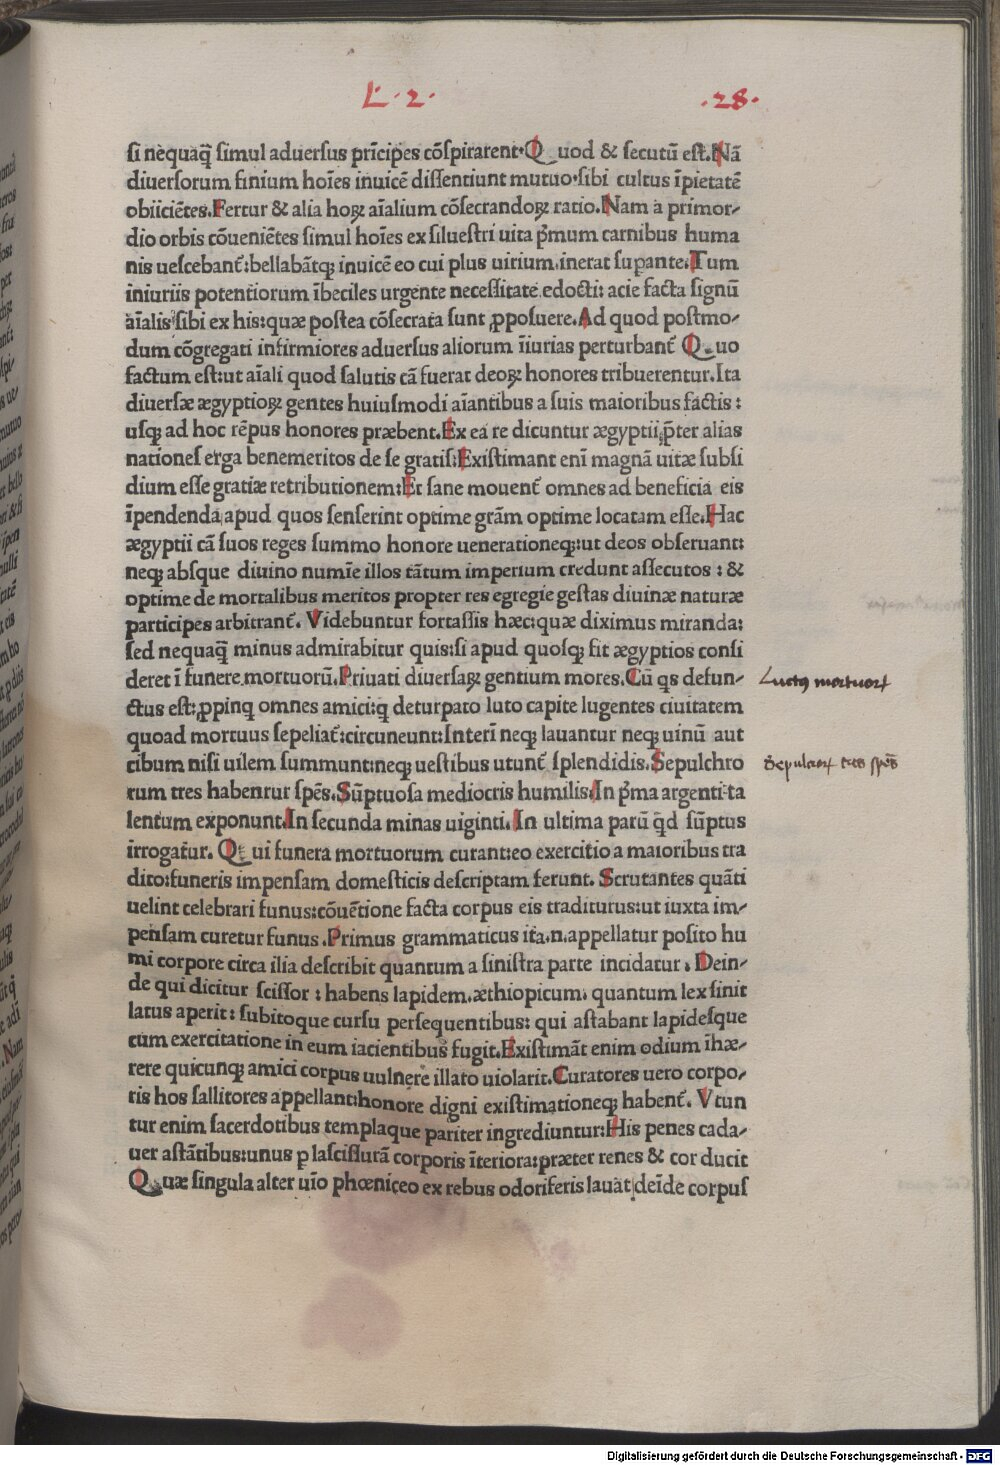 L. 2.
.28.
si neq̃uaq̃ simul aduersus prĩcipes cõspirarent. Quod & secutũ est. Nã
diuersorum finium hoĩes inuicẽ dissentiunt mutuo sibi cultus ĩpietatẽ
obiiciẽtes. Fertur & alia hoꝝ aĩalium cõsecrandoꝝ ratio. Nam a primor-
dio orbis cõueniẽtes simul hoĩes ex siluestri uita p̃mum carnibus huma
nis uescebant̃: bellabãtqꝫ inuicẽ eo cui plus uirium inerat supante. Tum
iniuriis potentiorum ĩbeciles urgente necessitate edocti: acie facta signũ
aĩalis sibi ex his: quæ postea cõsecrata sunt ꝓposuere. Ad quod postmo-
dum cõgregati infirmiores aduersus aliorum ĩiurias perturbant̃ Quo
factum est: ut aĩali quod salutis cã fuerat deoꝝ honores tribuerentur. Ita
diuersæ ægyptioꝝ gentes huiusmodi aĩantibus a suis maioribus factis:
usqꝫ ad hoc tẽpus honores præbent. Ex ea re dicuntur ægyptii p̃ter alias
nationes erga benemeritos de se gratis: Existimant enĩ magnã uitæ subsi
dium esse gratiæ retributionem: Et sane mouent̃ omnes ad beneficia eis
ĩpendenda apud quos senserint optime grãm optime locatam esse. Hac
ægyptii cã suos reges summo honore uenerationeqꝫ: ut deos obseruant:
neqꝫ absque diuino numĩe illos tãtum imperium credunt assecutos: &
optime de mortalibus meritos propter res egregie gestas diuinæ naturæ
participes arbitrant̃. Videbuntur fortassis hæc: quæ diximus miranda:
sed nequaq̃ minus admirabitur quis: si apud quosqꝫ fit ægyptios consi
deret ĩ funere mortuorũ. Priuati diuersaꝝ gentium mores. Cũ q̃s defun-
ctus est: ꝓpinq̃ omnes amici: q̃ deturpato luto capite lugentes ciuitatem
quoad mortuus sepeliat̃: circuneunt: Interĩ neqꝫ lauantur neqꝫ uinũ aut
cibum nisi uilem summunt: neqꝫ uestibus utunt̃ splendidis. Sepulchro
rum tres habentur spẽs. Sũptuosa mediocris humilis. In p̃ma argenti ta
lentum exponunt. In secunda minas uiginti. In ultima parũ q̃d sũptus
irrogatur. Qui funera mortuorum curant: eo exercitio a maioribus tra
dito: funeris impensam domesticis descriptam ferunt. Scrutantes quãti
uelint celebrari funus: cõuẽtione facta corpus eis traditurus: ut iuxta im-
pensam curetur funus. Primus grammaticus ita.n.appellatur posito hu
mi corpore circa ilia describit quantum a sinistra parte incidatur. Dein-
de qui dicitur scissor: habens lapidem æthiopicum quantum lex sinit
latus aperit: subitoque cursu persequentibus: qui astabant lapidesque
cum exercitatione in eum iacientibus fugit. Existimãt enim odium ĩhæ-
rere quicunqꝫ amici corpus uulnere illato uiolarit. Curatores uero corpo-
ris hos sallitores appellant: honore digni existimationeqꝫ habent̃. Vtun
tur enim sacerdotibus templaque pariter ingrediuntur: His penes cada-
uer astãtibus: unus ꝑ lascissurã corporis ĩteriora: præter renes & cor ducit
Quæ singula alter uĩo phœniceo ex rebus odoriferis lauãt deĩde corpus
Luctꝰ mortuorꝝ
Sepulcrorꝝ tres spẽs
Digitalisierung gefördert durch die Deutsche Forschungsgemeinschaft - DFG